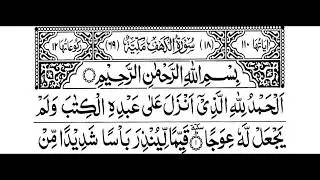 اٰیَاتُهَا ١١٠ (١٨) سُوْرَةُ الْكَهْفِ مَكِّيَّةٌ (٦٩) رُكُوْعَاتُهَا ١٢
بِسْمِ اللّٰهِ الرَّحْمٰنِ الرَّحِيْمِ
اَلْحَمْدُ لِلّٰهِ الَّذِيْۤ اَنْزَلَ عَلٰى عَبْدِهِ الْكِتٰبَ وَلَمْ
يَجْعَلْ لَّهٗ عِوَجًا ١ قَيِّمًا لِّيُنْذِرَ بَاْسًا شَدِيْدًا مِّنْ